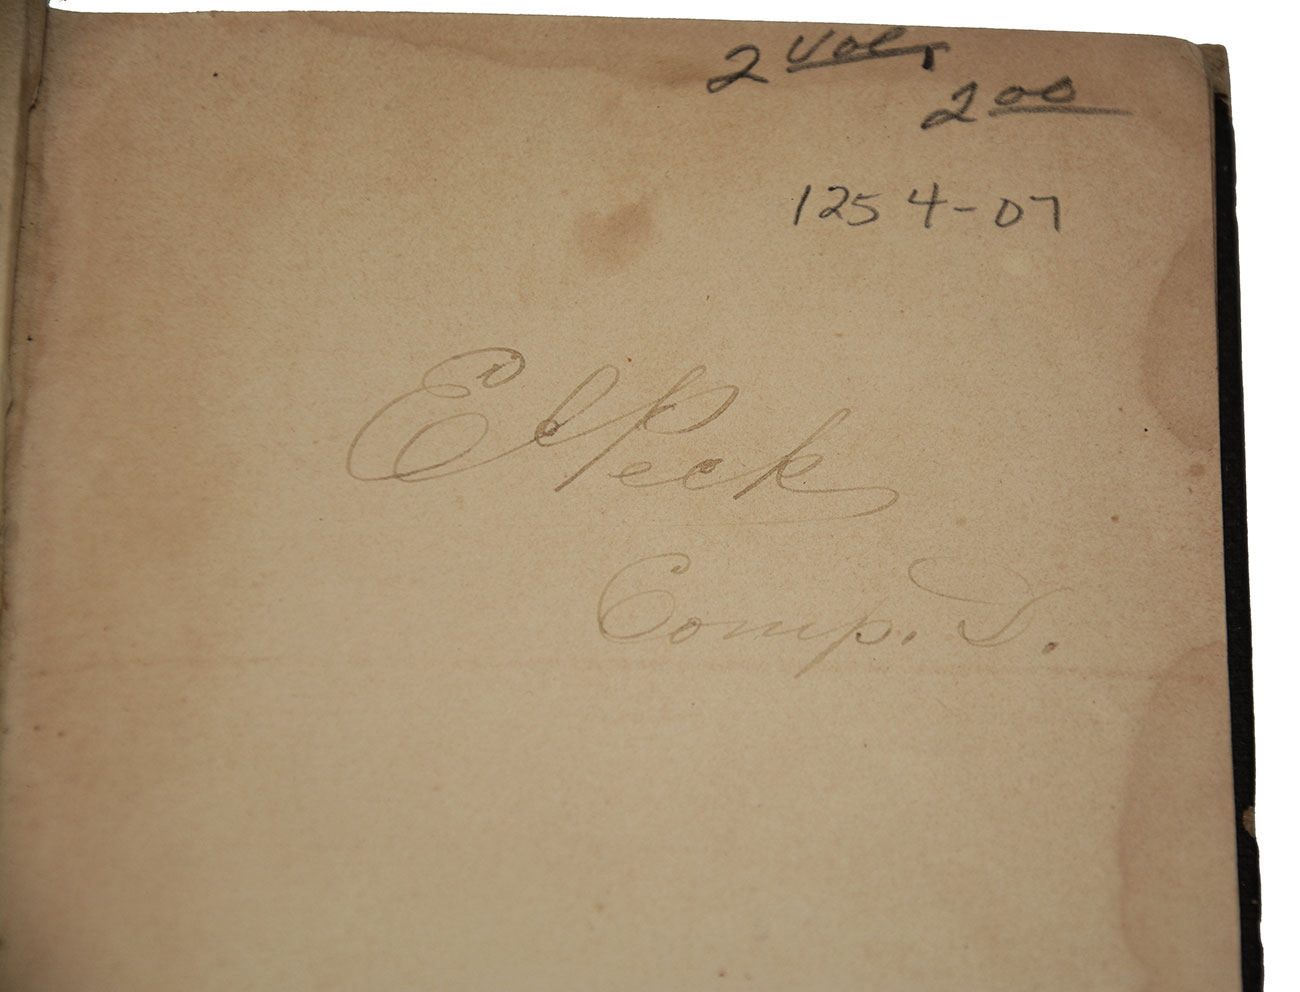 2 vol.
2 00
1254-07
E Peck
Comp. D.